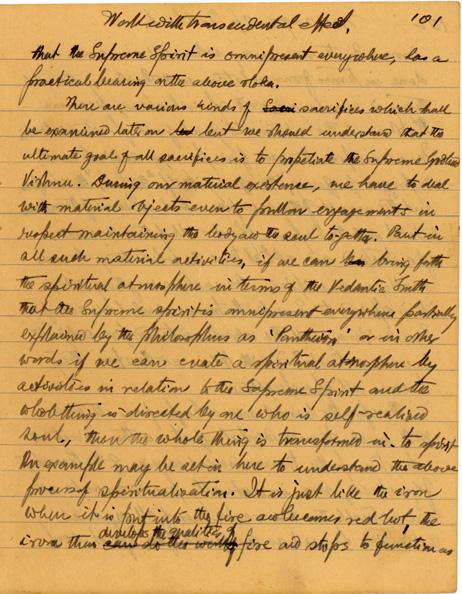 Work with transcendental effect. 101
that the Supreme Spirit is omnipresent everywhere, has a
practical bearing on the above sloka.
There are various kinds of Sacri sacrifices which shall
be examined later on but but we should understand that the
ultimate goal of all sacrifices is to propitiate the Supreme Godhead
Vishnu. During our material existence, we have to deal
with material objects even to for our engagements in
respect maintaining the body and the soul together. But in
all such material activities, if we can bring forth
the spiritual atmosphere in terms of the Vedantic truth
that the Supreme spirit is omnipresent everywhere partially
explained by the philosophers as 'Pantheism' or in other
words if we can create a spiritual atmosphere by
activities in relation to the Supreme Spirit and the
whole thing is directed by one who is self-realized
soul, then the whole thing is transformed in to spirit
An example may be set in here to understand the above
process of spiritualisation. It is just like the iron
when it is put into the fire and becomes red hot, the
iron then develops the qualities of fire and stops to function as